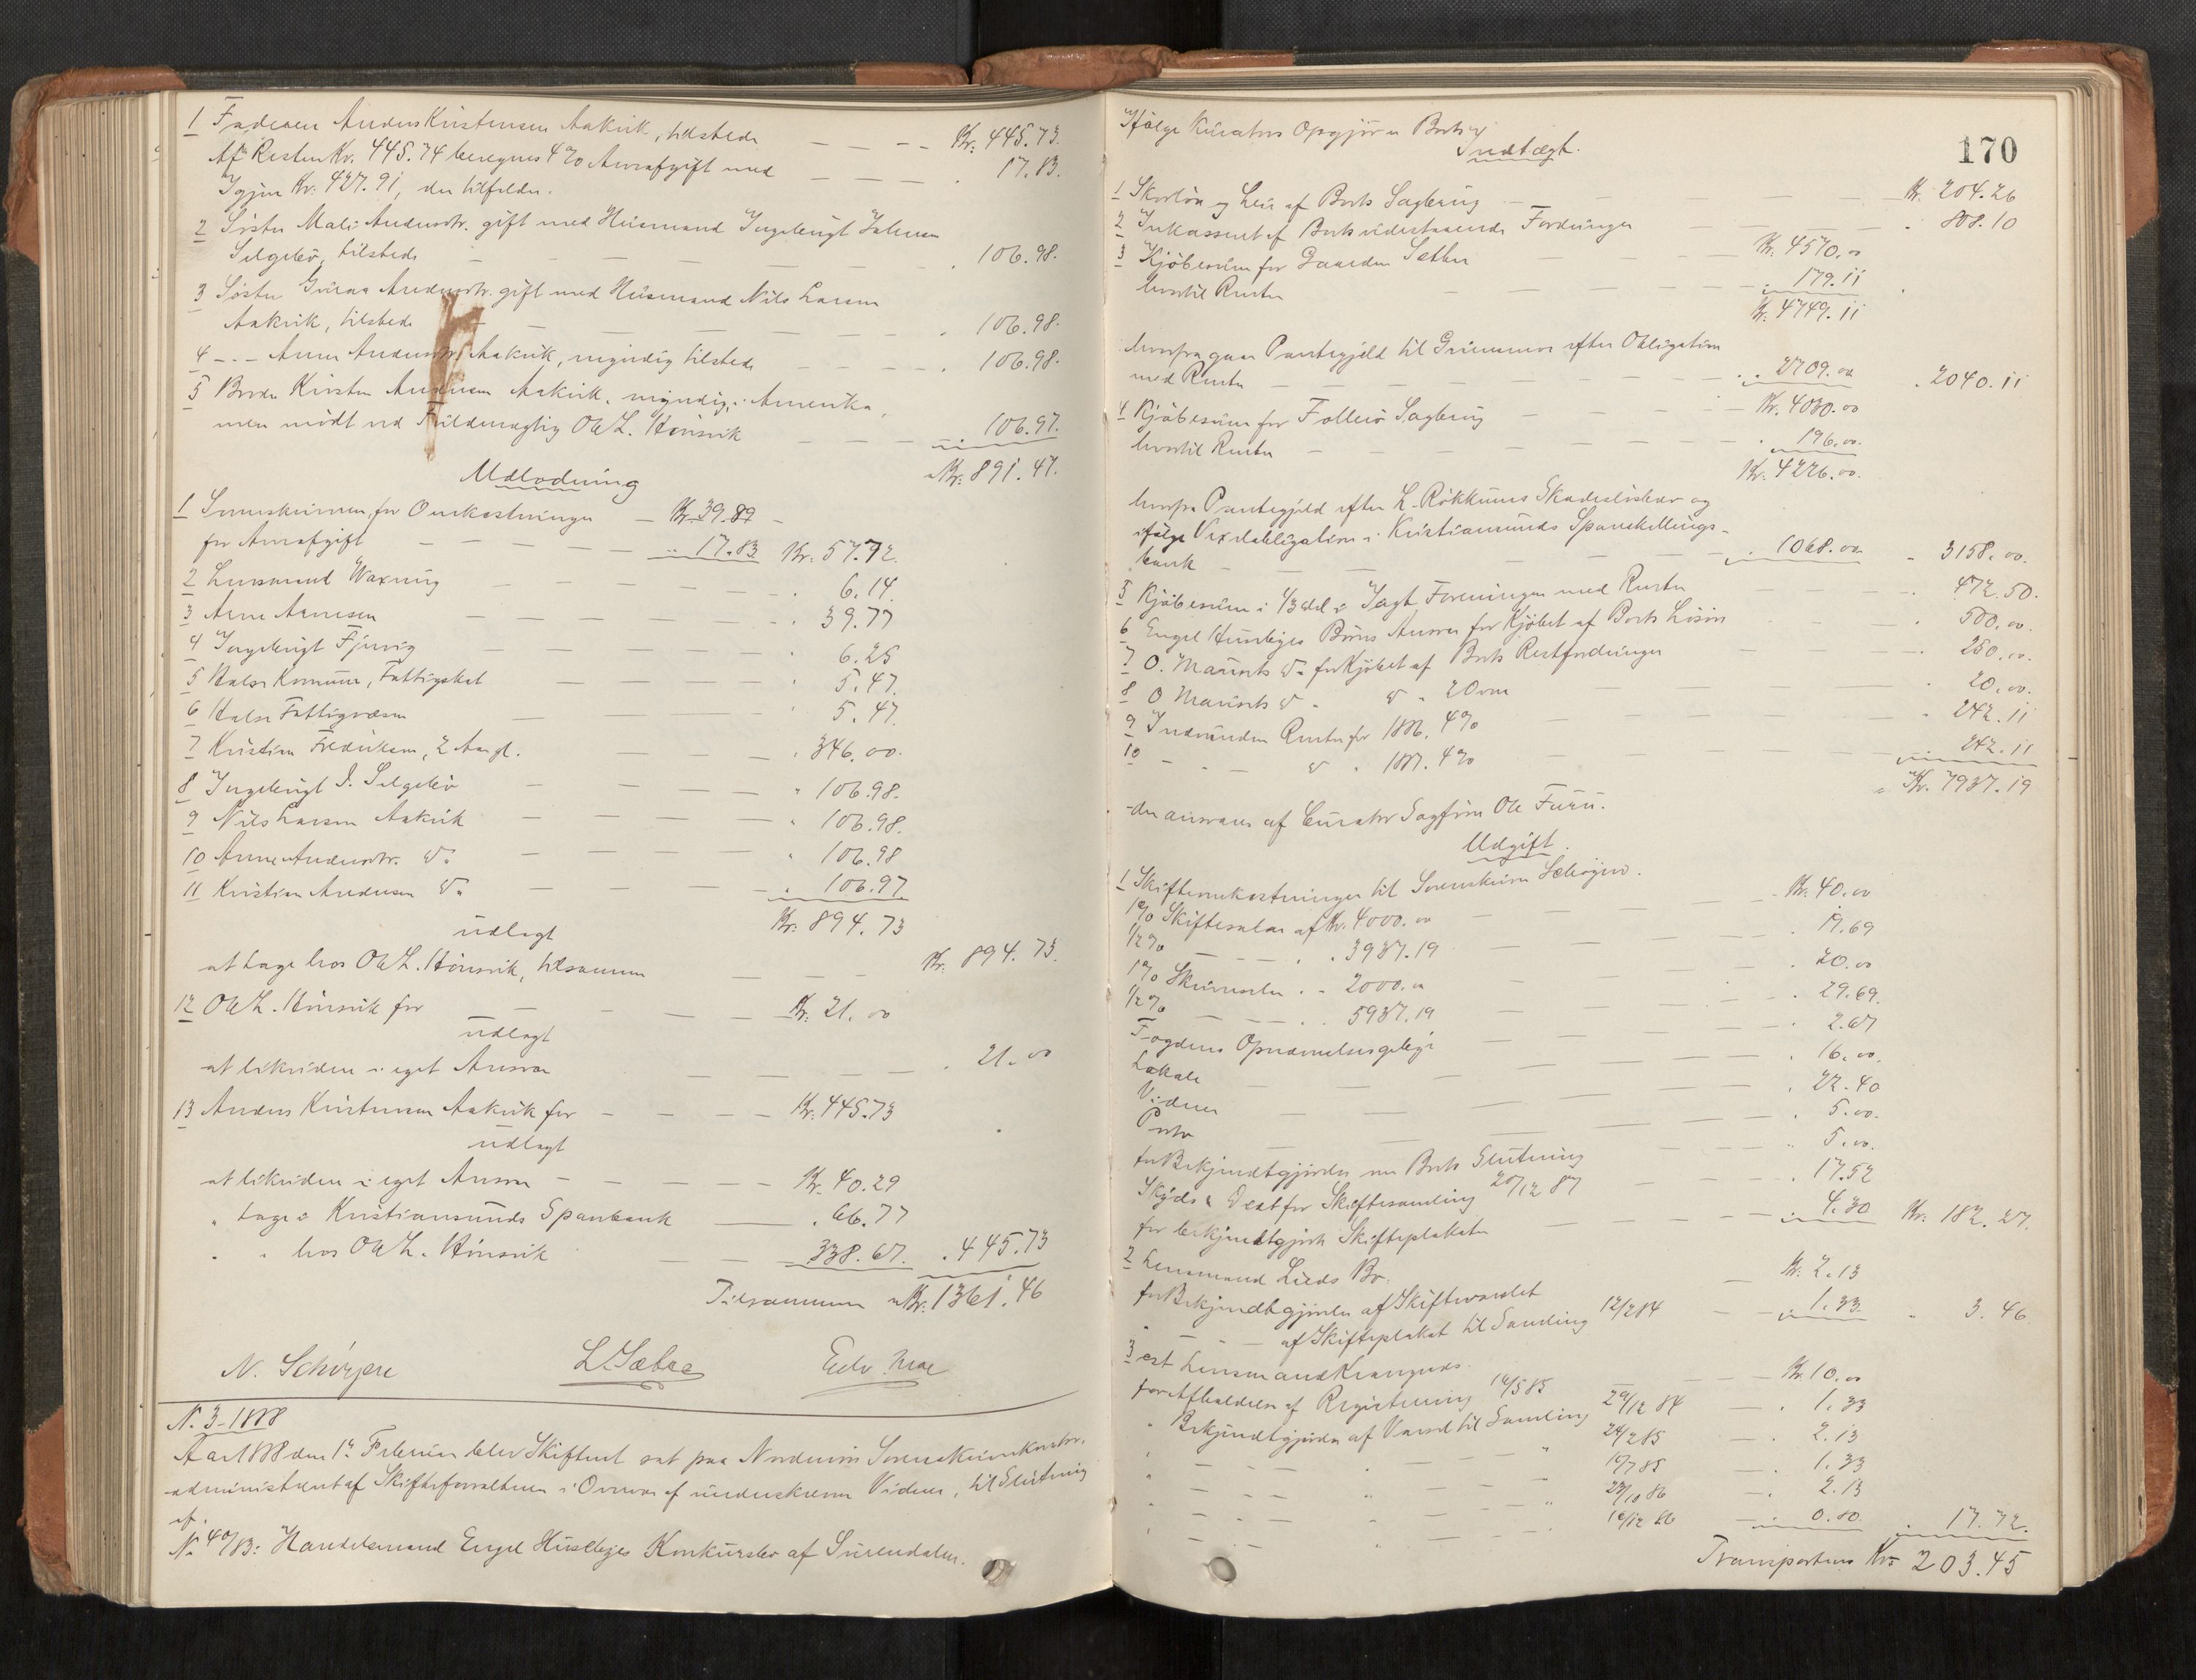 1 Faderen Anders Kristensen Aakvik, tilstede — — — Kr. 445.73.
Af Resten Kr. 445.74 beregnes 4% Arveafgift med — — — . 17.83.
Igjen Kr. 427.91, der tilfalder.
2 Søster Mali Andersdtr. gift med Husmand Ingebrigt
Selgebø, tilstede — — — . 106.98.
3 Søster Andersdtr. gift med Husmand Nils Larsen
Aakvik, tilstede — — — . 106.98.
4 – . – Anne Andersdtr. Aakvik, myndig tilstede — — — . 106.98.
5 Broder Kristen Andersen Aakvik, myndig, i Amerika,
men mødt ved Fuldmægtig Ole L. Hønsvik — — — . 106.97.
Kr. 891.47.
Udlodning
1 Sorenskriveren for Omkostninger — Kr. 39.89
for Arveafgift — — — . 17.83 Kr. 57.72.
2 Lensmand Waxvig — — — . 6.14.
3 Arne Arnesen — — — . 39.77
4 Ingebrigt Fjærvig — — — . 6.25
5 Halse Komune, Fattigskat — — — . 5.47.
6 Halse Fattigvæsen — — — . 5.47.
7 Kristian Fredriksen, 2 Angl. — — — . 346.00.
8 Ingebrigt I. Selgebø — — — . 106.98.
9 Nils Larsen Aakvik — — — . 106.98.
10 Anne Andersdtr. Do — — — . 106.98
11 Kristian Andersen Do — — — . 106.97
Kr. 894.73
udlagt
at tage hos Ole L. Hønsvik, tilsammen — — — Kr. 894.73.
12 Ole L. Hønsvik for — — — Kr. 21.00
udlagt
at likvidere i eget Ansvar — — — . 21.00
13 Anders Kristensen Aakvik for — — — Kr. 445.73
udlagt
at likvidere i eget Ansvar — — — Kr. 40.29
" tage i Kristiansunds Sparebank — . 66.77
" " hos Ole L. Hønsvik — — 338.67. . 445.73
Tilsammen Kr. 1361.46
N. Schörgen L. Sæbøe Edv. Moe
N. 3 – 1888
Aar 1888 den 1ste Februar blev Skifteret sat paa Nordmøre Sorenskriverkontor,
administreret af Skifteforvalteren i Overvær af underskrevne Vidner, til Slutning
af
N. 40/83: Handelsmand Engel Husebyes Konkursbo af Surendalen.
170
Ifølge Kurators Opgjør er Boets
Indtægt.
1 Skurløn og Leie af Boets Sagbrug — — — Kr. 204.26
2 Inkasseret af Boets udestaaende Fordringer — — — . 808.10
3 Kjøbesum for Gaarden Sæther — Kr. 4570.00
hvortil Renter — — — . 179.11
Kr. 4749.11
hvorfra gaar Pantegjeld til efter Obligation
med Renter — — — . 2709.00 . 2040.11
4 Kjøbesum for Follesø Sagbrug — — — Kr. 4030.00
hvortil Renter — — — . 196.00.
Kr. 4226.00.
hvorfra Pantegjeld efter L. Røkkums Skadesløsbrev og
ifølge Vexelobligation i Kristiansunds Spareskillings-
bank — — — . 1068.00 . 3158.00.
5 Kjøbesum i 1/3 del i Jagt Foreningen med Renter — . 472.50.
6 Engel Husebyes Børns Ansvar for Kjøbet af Boets Løsøre — . 500.00.
7 O. Mauseth Do for Kjøbet af Boets Restfordringer — . 250.00.
8 O Mauseth Do " Do " — . 20.00.
9 Indvundne Renter for 1886. 4% — — . 242.11
10 — . — Do . 1887. 4% — — . 242.11
Kr. 7937.19
der ansvares af Curator Sagfører Ole Furu.
Udgift.
1 Skifteomkostninger til Sorenskriver Schørgen.
1% Skiftesalær af Kr. 4000.00 — — Kr. 40.00
1/2% — — . . 3937.19 — — . 19.69
1% Skriversalær . . 2000.00 — — . 20.00
1/2% — — . . 5937.19 — — . 29.69.
Fogdens Opnævnelsesgebyr — — . 2.67
Lokale — — . 16.00.
Vidner — — . 22.40
Porto — — . 5.00.
for Bekjendtgjørelse om Boets Slutning — — . 5.00.
Skyds & Diæt for Skiftesamling 20/12 87 — . 17.52
for bekjendtgjort Skifteplakater — — . 4.30 Kr. 182.27.
2 Lensmand Lieds Bo.
for Bekjendtgjørelse af Skiftevarslet — Kr. 2.13
" — " — af Skifteplakat til Samling 12/2 84 — . 1.33 . 3.46.
3 cst Lensmand Kvangnes
for Afholdelse af Registrering 14/5 85 — Kr. 10.00
" Bekjendtgjørelse af Varsel til Samling 29/12 84 — . 1.33
" — — " 24/2 85 — . 2.13
" — — " 19/7 85 — . 1.33
" — — " 23/10 86 — . 2.13
" — — " 16/12 86 — . 0.80. . 17.72.
Transporteres Kr. 203.45